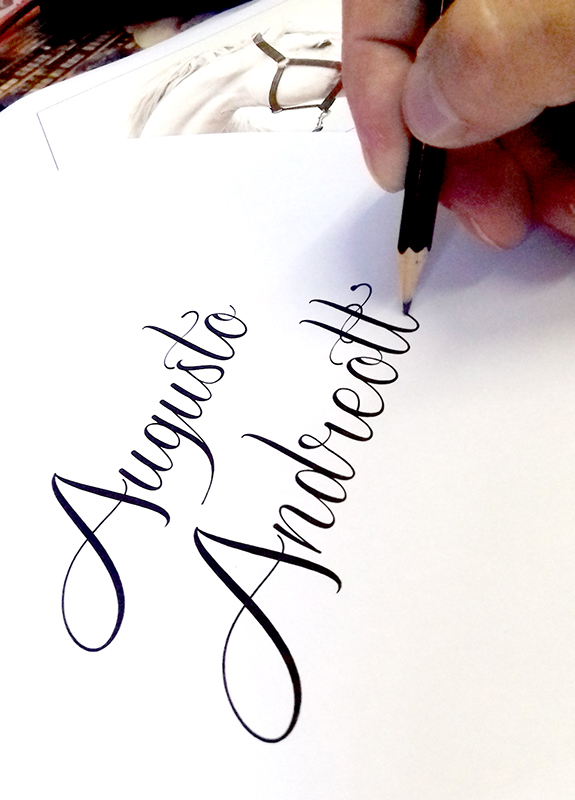 Augusto
Andreott